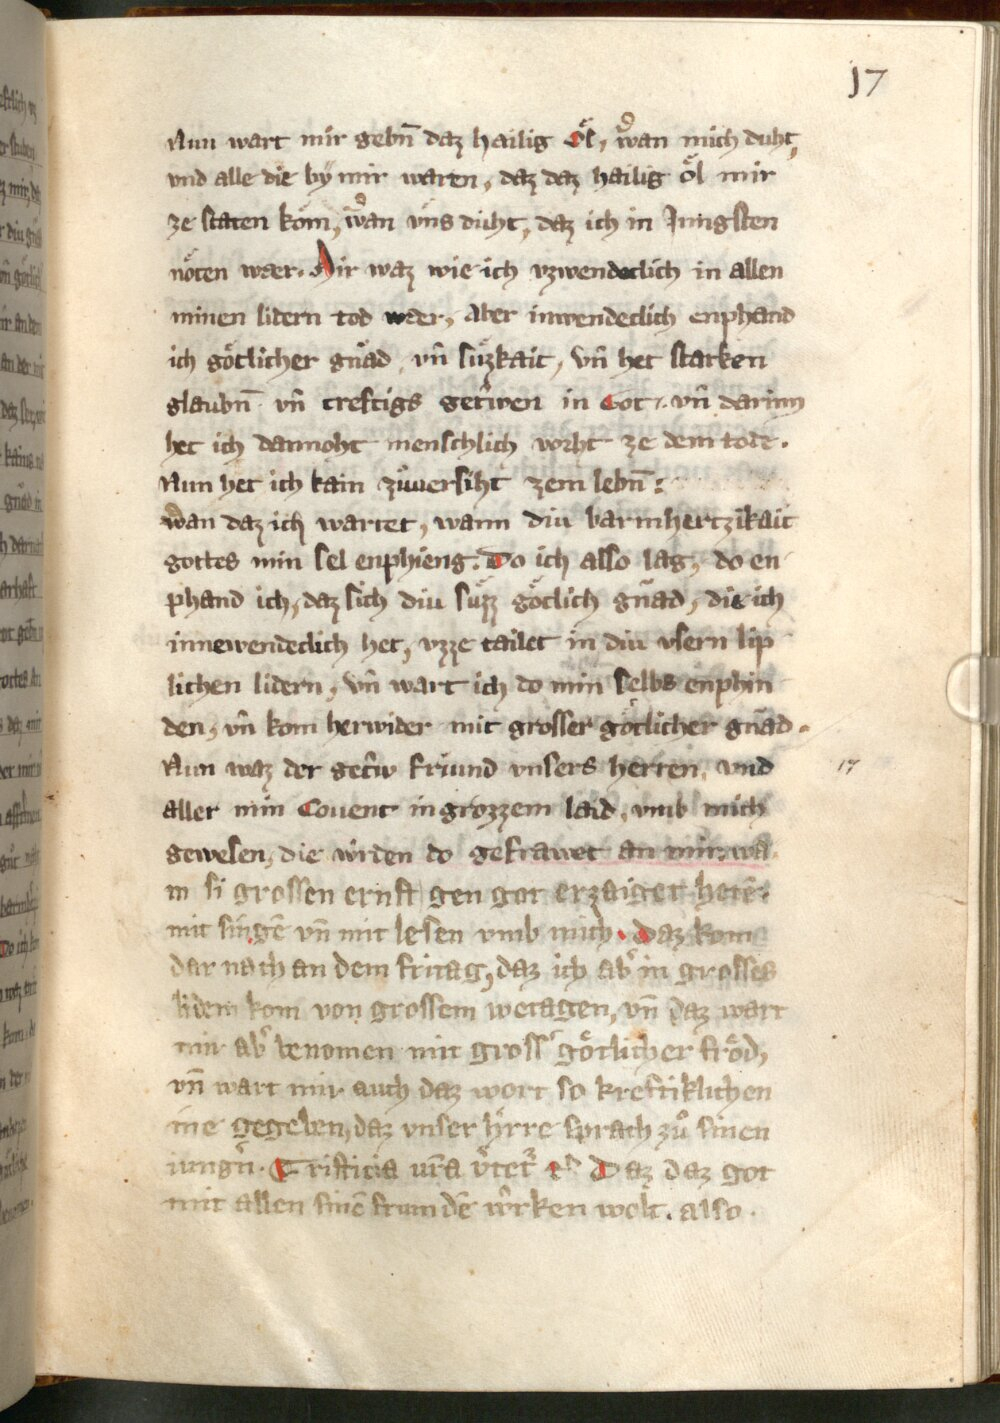 17
Nun wart mir gebn̄ daz hailig o̊l, wan mich duht,
vnd alle die by mir waren, daz daz hailig o̊l mir
ze staten kom, wan vns duht, daz ich in Jungsten
nöten wær. Mir waz wie ich vzwendeclich in allen
minen lidern tod wær, aber inwendeclich enphand
ich götlicher gnad, vn̄ süzkait, vn̄ het starken
glaubn̄ vn̄ creftigs getrwen in Got. vn̄ darinn
het ich dannoht menschlich vorht ze dem tode.
Nun het ich kain zůuersiht zem lebn̄:
wan daz ich wartet, wann diu barmhertzikait
gottes min sel enphieng. Do ich also lag, do en
phand ich, daz sich diu süzz götlich gnad, die ich
innewendeclich het, vzze tailet in diu vsern lip
lichen lidern, vn̄ wart ich do min selbs enphin
den, vn̄ kom herwider mit grosser götlicher gnad.
Nun waz der getrw friund vnsers herren, vnd
17
aller min Couent in grozzem laid, vmb mich
gewesen, die wrden do gefrawet an mir, wa
in si grossen ernst gen got erzaiget hetē.
mit singē vn̄ mit lesen vmb mich. Daz kom
dar nach an dem fritag, daz ich ab' in grosses
liden kom von grossem wetagen, vn̄ daz wart
mir ab' benomen mit gross' götlicher fröd,
vn̄ wart mir auch daz wort so kreftiklichen
in gegeben, daz vnser hrre sprach zů sinen
iungn̄. Tristicia vr̄a v'tet' &c Daz daz got
mit allen sinē frumdē wrken wolt. also.